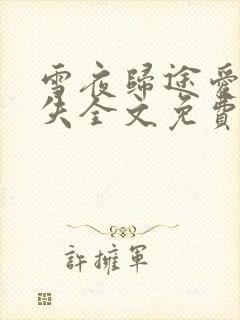 雪夜歸途愛
失全文免費
許擁軍